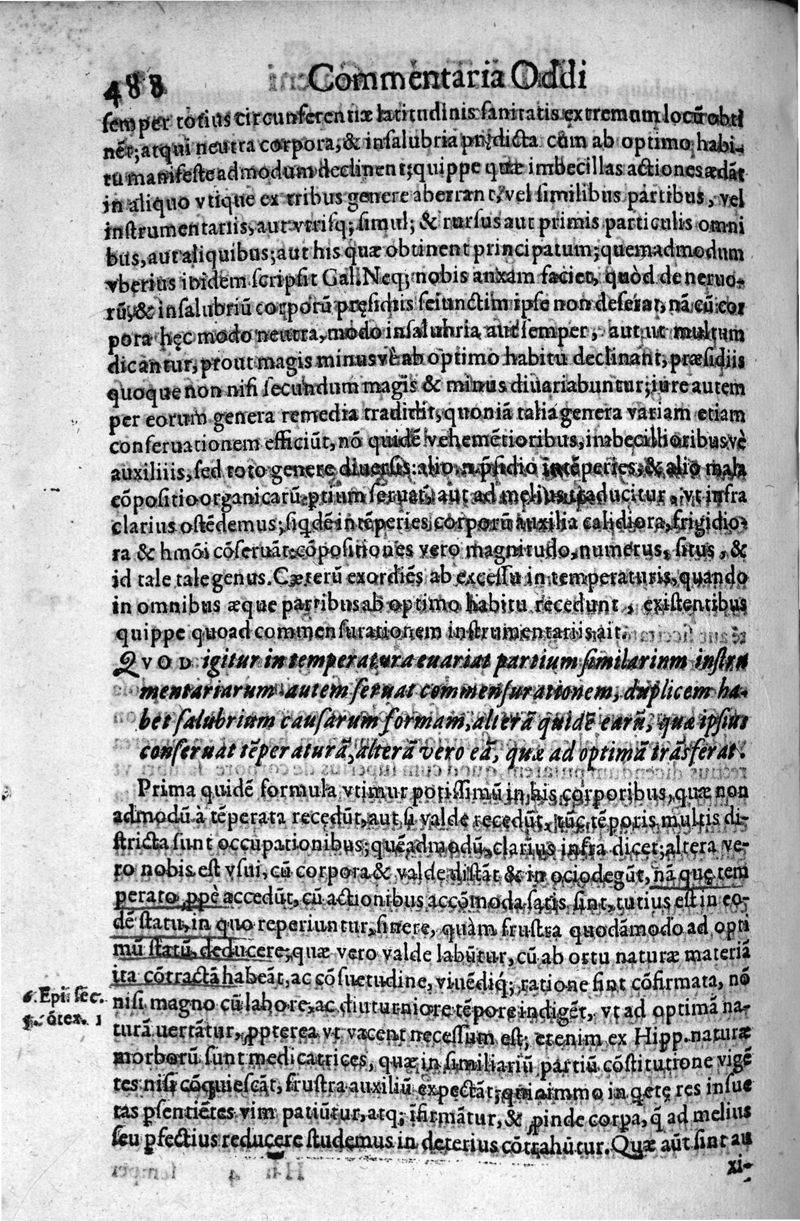 488 Commentaria Oddi
semper totius circunferentiæ latitudinis sanitatis extremum locũ obti
nẽt; atqui neutra corpora, & insalubria prędicta cum ab optimo habi-
tu manifeste admodum declinent; quippe quæ imbecillas actiones ædãt
in aliquo vtique ex tribus genere aberrant, vel similibus partibus, vel
instrumentariis, aut vtrisq; simul; & rursus aut primis particulis omni
bus, aut aliquibus; aut his quæ obtinent principatum; quemadmodum
vberius ibidem scripsit Gal. Neq; nobis anxam faciet, quòd de neruo-
rũ, & insalubriũ corporũ pręsidiis seiunctim ipse non deserat, nã cũ cor
pora hęc modo neutra, modo insalubria aut semper, aut ut multum
dicantur, prout magis minusve ab optimo habitu declinant, præsidiis
quoque non nisi secundum magis & minus diuariabuntur; iure autem
per eorum genera remedia tradidit, quoniã talia genera variam etiam
conseruationem efficiũt, nõ quidẽ vehemẽtioribus, imbecillioribus vè
auxiliiis, sed toto genere diuersis: alio n. p̃sidio intẽperies, & alio mala
cõpositio organicarũ ptium seruat, aut ad melius traducitur, vt infra
clarius ostẽdemus; siqdẽ intẽperies corporũ auxilia calidiora, frigidio-
ra & hmõi cõseruãt: cõpositiones vero magnitudo, numerus, situs, &
id tale tale genus. Cæterũ exordiẽs ab excessu in temperaturis, quando
in omnibus æque partibus ab optimo habitu recedunt, existentibus
quippe quoad commensurationem instrumentariis, ait.
QVOD igitur in temperatura euariat partium similarium instru
mentariarum autem seruat commensurationem, duplicem ha-
bet salubrium causarum formam, alterã quidẽ earũ, quæ ipsius
conseruat tẽperaturã, alterã vero eã, quæ ad optimã trãsferat.
Prima quidẽ formula vtimur potissimũ in his corporibus, quæ non
admodũ à tẽperata recedũt, aut si valde recedũt, tũc tẽporis multis di-
stricta sunt occupationibus; quẽadmodũ clarius infra dicet; altera ve-
ro nobis est vsui, cũ corpora & valde distãt & in ocio degũt, nã quę tem
perato ppè accedũt, cũ actionibus accõmoda satis sint, tutius est in eo-
dẽ statu, in quo reperiuntur, sinere, quàm frustra quodãmodo ad opti
mũ statũ deducere; quæ vero valde labũtur, cũ ab ortu naturæ materiã
ita cõtractã habeãt, ac cõsuetudine, viuẽdiq; ratione sint cõfirmata, nõ
6. Epi. sec.
5. cõtex. 1
nisi magno cũ labore, ac diuturniore tẽpore indigẽt, vt ad optimã na-
turã uertãtur, ppterea vt vacent necessum est; etenim ex Hipp. naturæ
morborũ sunt medicatrices, quæ in similiariũ partiũ cõstitutione vigẽ
tes nisi cõquiescãt, frustra auxiliũ expectãt; quinimmo inqete res insue
tas psentiẽtes vim patiũtur, atq; ĩfirmãtur, & pinde corpa, q̃ ad melius
seu pfectius reducere studemus in deterius cõtrahũtur. Quæ aũt sint au
xi-